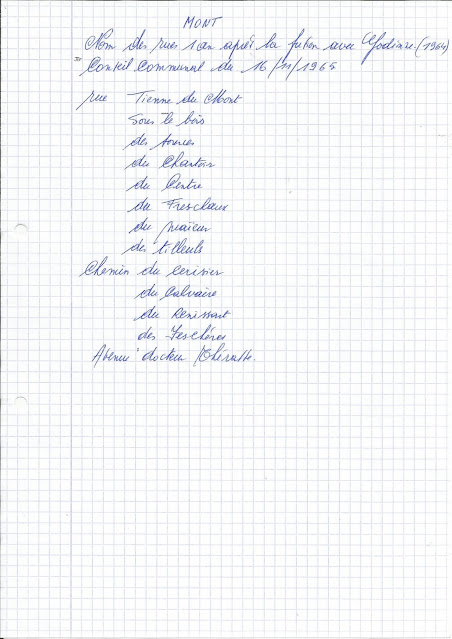 MONT
Nom des rues 1 an après la fusion avec Godinne (1964)
Conseil Communal du 16/11/1965
rue Tienne du Mont
Sous le bois
des sources
du Chantoir
du Centre
du Freschaux
du maïeur
des tilleuls
Chemin du cerisier
du Calvaire
du
des
Avenue docteur